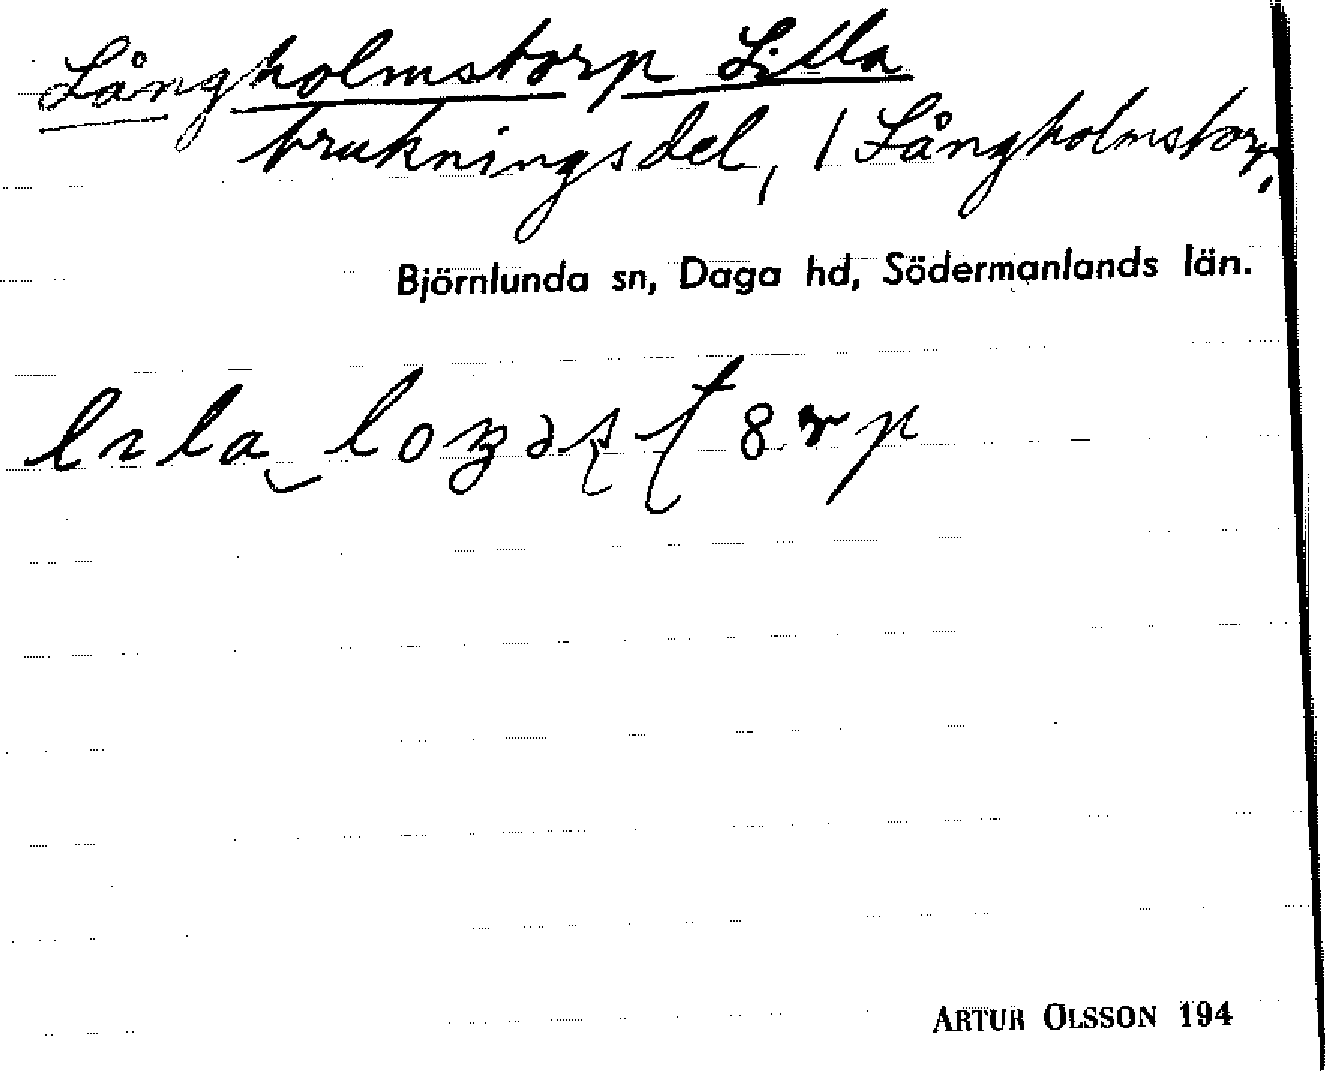 Långholmstorp Lilla
brukningsdel, 1 Långholmstorp,
Björnlunda sn, Daga hd, Södermanlands län.
ARTUR OLSSON 194